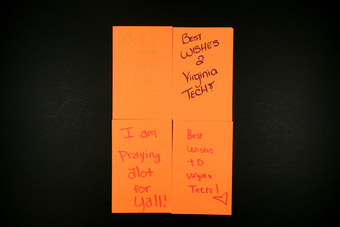 BEST
WISHES
2
Virginia
TECH!
I am
Praying
alot
for
Yall!
Best
Wishes
TO
Virginia
Tech!